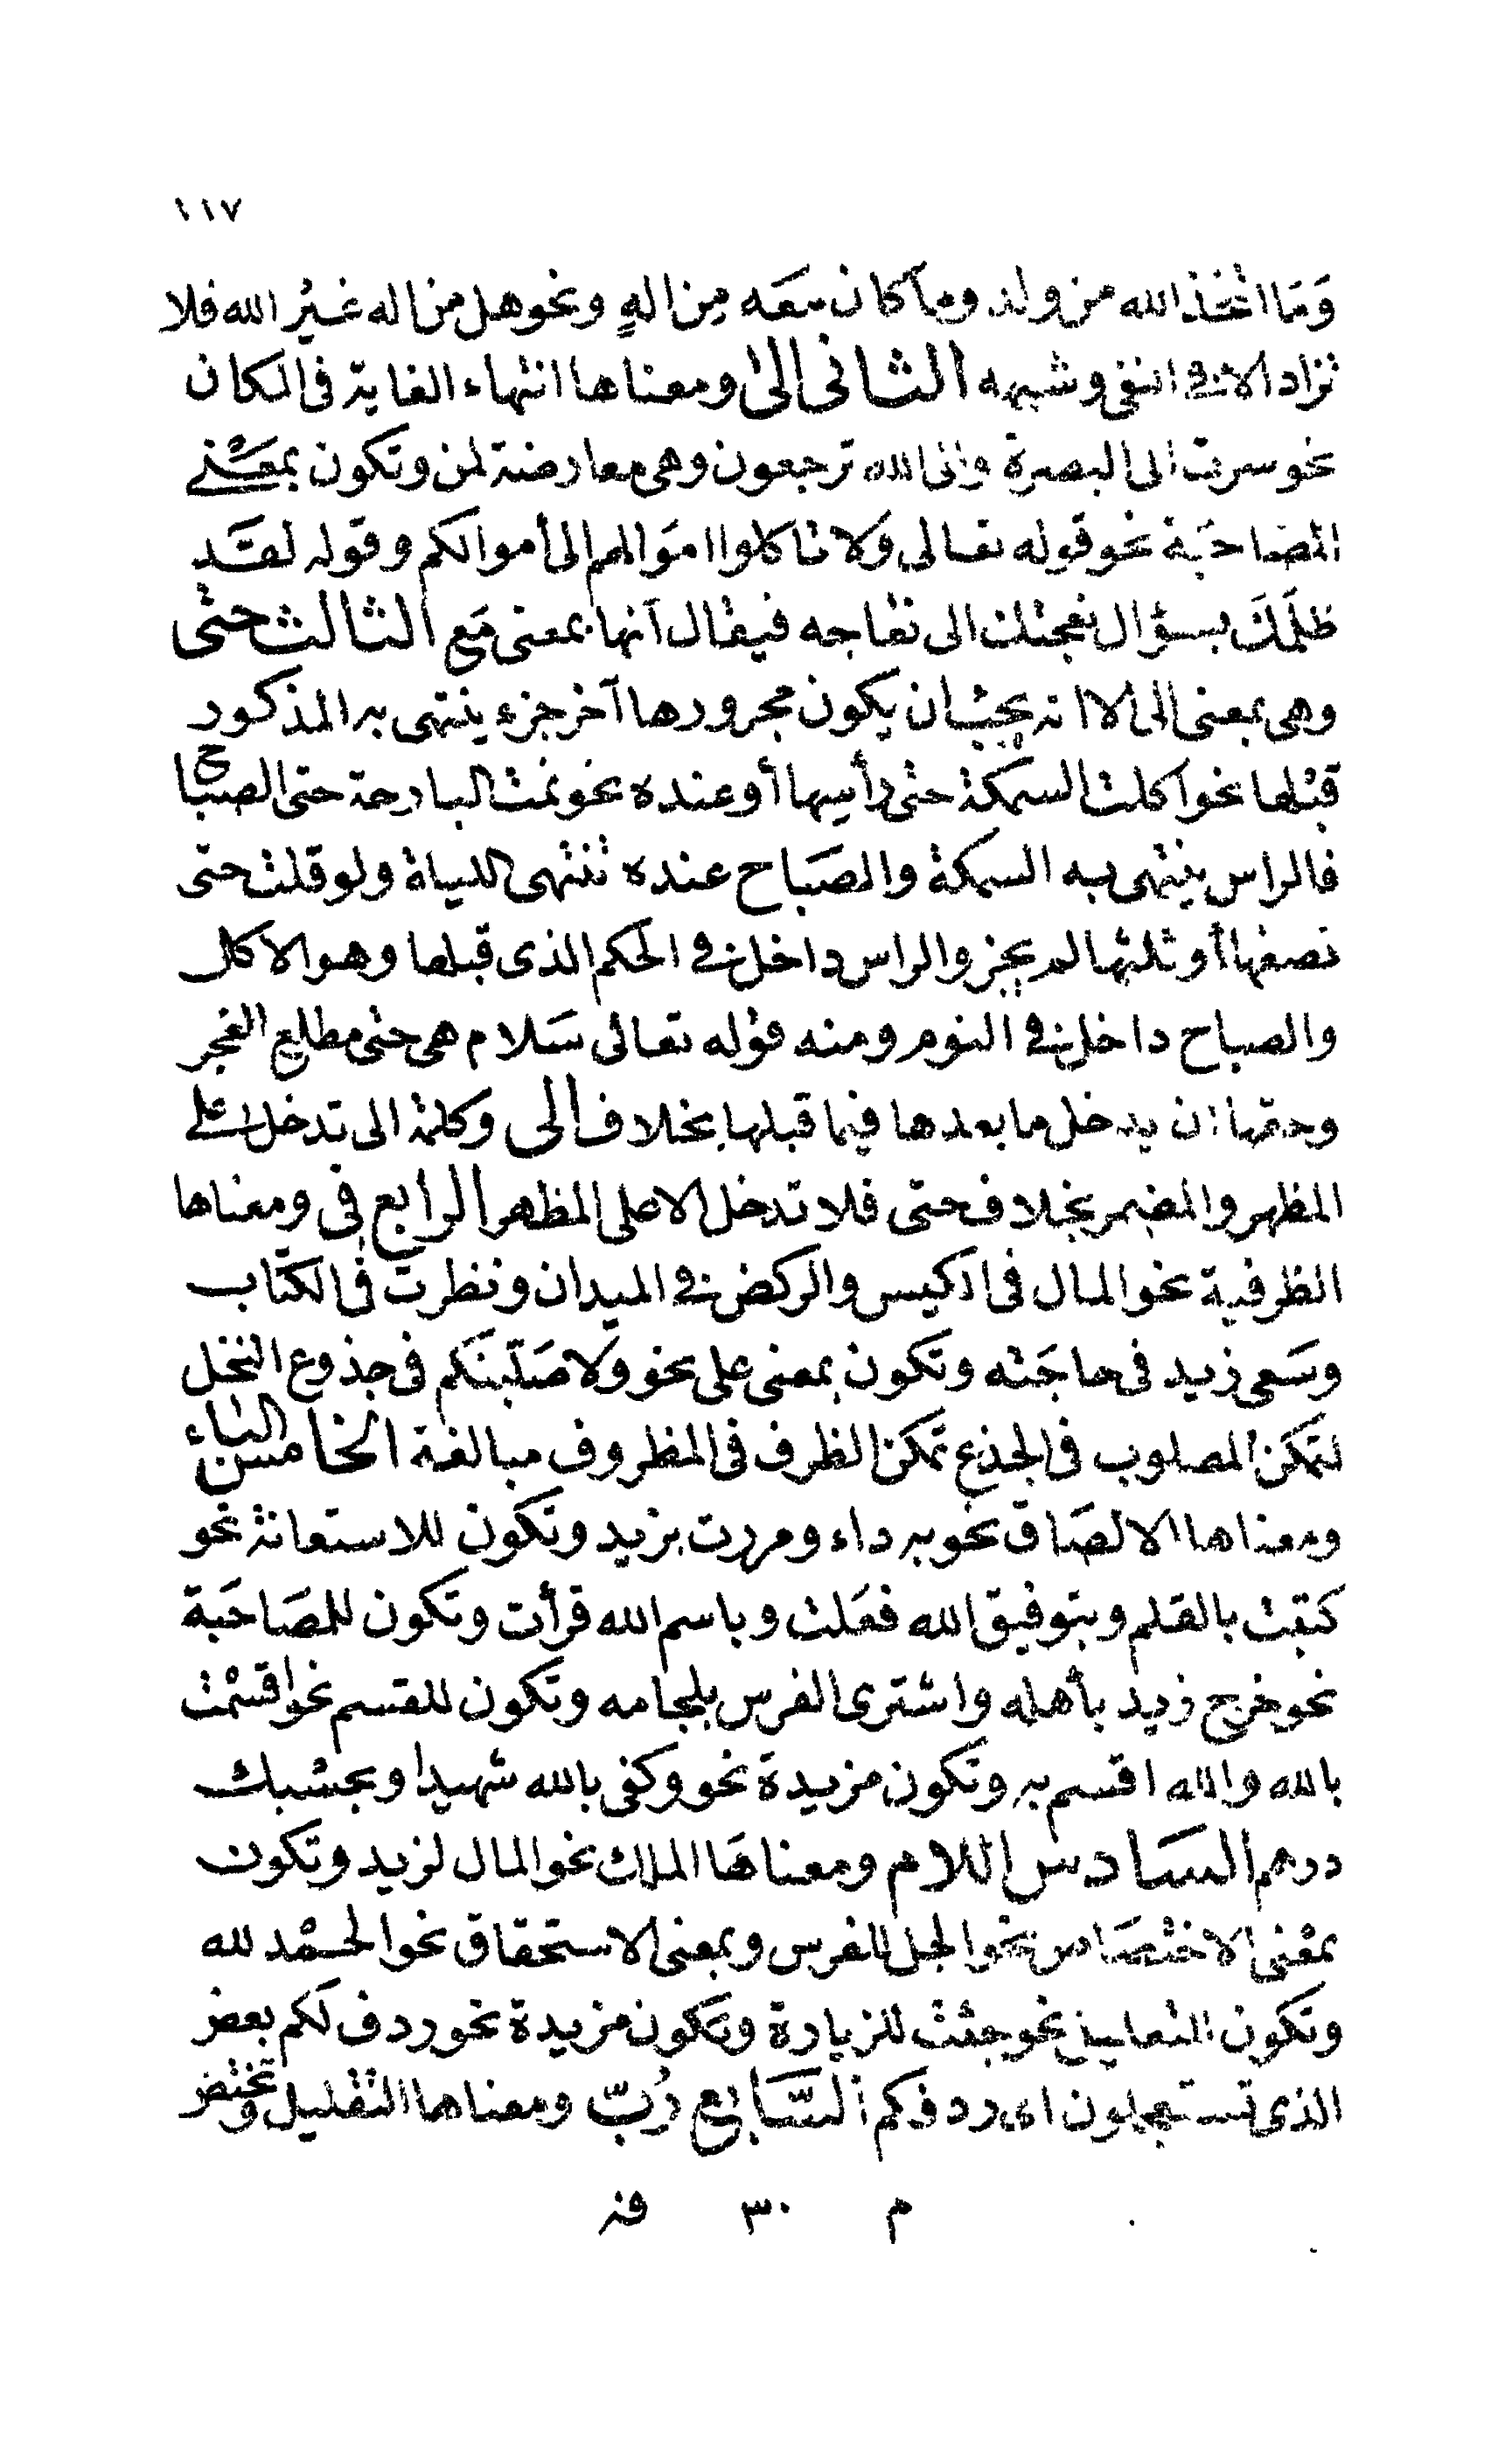 ١١٧
وَمَا اتخذ الله من ولد وما كان معَه مِن الهٍ ونحو هل من اله غيرُ الله فلا
تزاد الا فى النفى وشبهه الثانى الى ومعناها انتهاء الغاية فى المكان
نحو سرت الى البصرة والى الله ترجعون وهى معارضة لمن وتكون بمعنى
المصاحَبة نحو قوله تعالى ولا تاكلوا اموَالهم الى أموالكم وقوله لقَد
ظلَمَكَ بسؤال نعجتك الى نعاجه فيقال آنها بمعنى مَع الثالث حتى
وهى بمعنى الى الا انه يجب ان يكون مجرورها آخر جزء ينتهى به المذكور
قبلها نحو اكلت السمكة حتى رأسِها أو عنده نحو نمت البارحة حتى الصباح
فالراس ينتهى به السمكة والصَبَاح عنده تنتهى الليلة ولو قلت حتى
نصفها أو ثلثها لم يجز والراس داخل فى الحكم الذى قبلها وهو الاكل
والصباح داخل فى النوم ومنه قوله تعالى سَلام هى حتى مطلع الفجر
وحقها ان يدخل ما بعدها فيما قبلها بخلاف الى وكلمة الى تدخل على
المظهر والمضمر بخلاف حتى فلا تدخل الا على المظهر الرابع فى ومعناها
الظرفية نحو المال فى الكيس والركض فى الميدان ونظرت فى الكتاب
وسَعى زيد فى حاجَته وتكون بمعنى على نحو ولاصَلّبنكم فى جذوع النخل
لتمكن المصلوب فى الجذع تمكن الظرف فى المظروف مبالغة الخامس الباء
ومعناها الالصَاق نحو به داء ومررت بزيد وتكون للاستعانة نحو
كتبت بالقلم وبتوفيق الله فعَلت وباسم الله قرأت وتكون للمصَاحَبة
نحو خرج زيد بأهله واشترى الفرس بلجامه وتكون للقسم نحو اقسمْت
بالله والله اقسم به وتكون مزيدة نحو وكفى بالله شهيدا وبحسبك
درهم السَادس اللام ومعناهَا الملك نحو المال لزيد وتكون
بمعْنى الاختصَاص نحو الجل للفرس وبمعنى الاستحقاق نحو الحمْد لله
وتكون للتعليل نحو جئت للزيارة وتكون مزيدة نحو ردف لكم بعض
الذى تستعجلون اى ردفكم السَّابع رُبّ ومعناها التقليل وتختص
م ٣٠ فـ